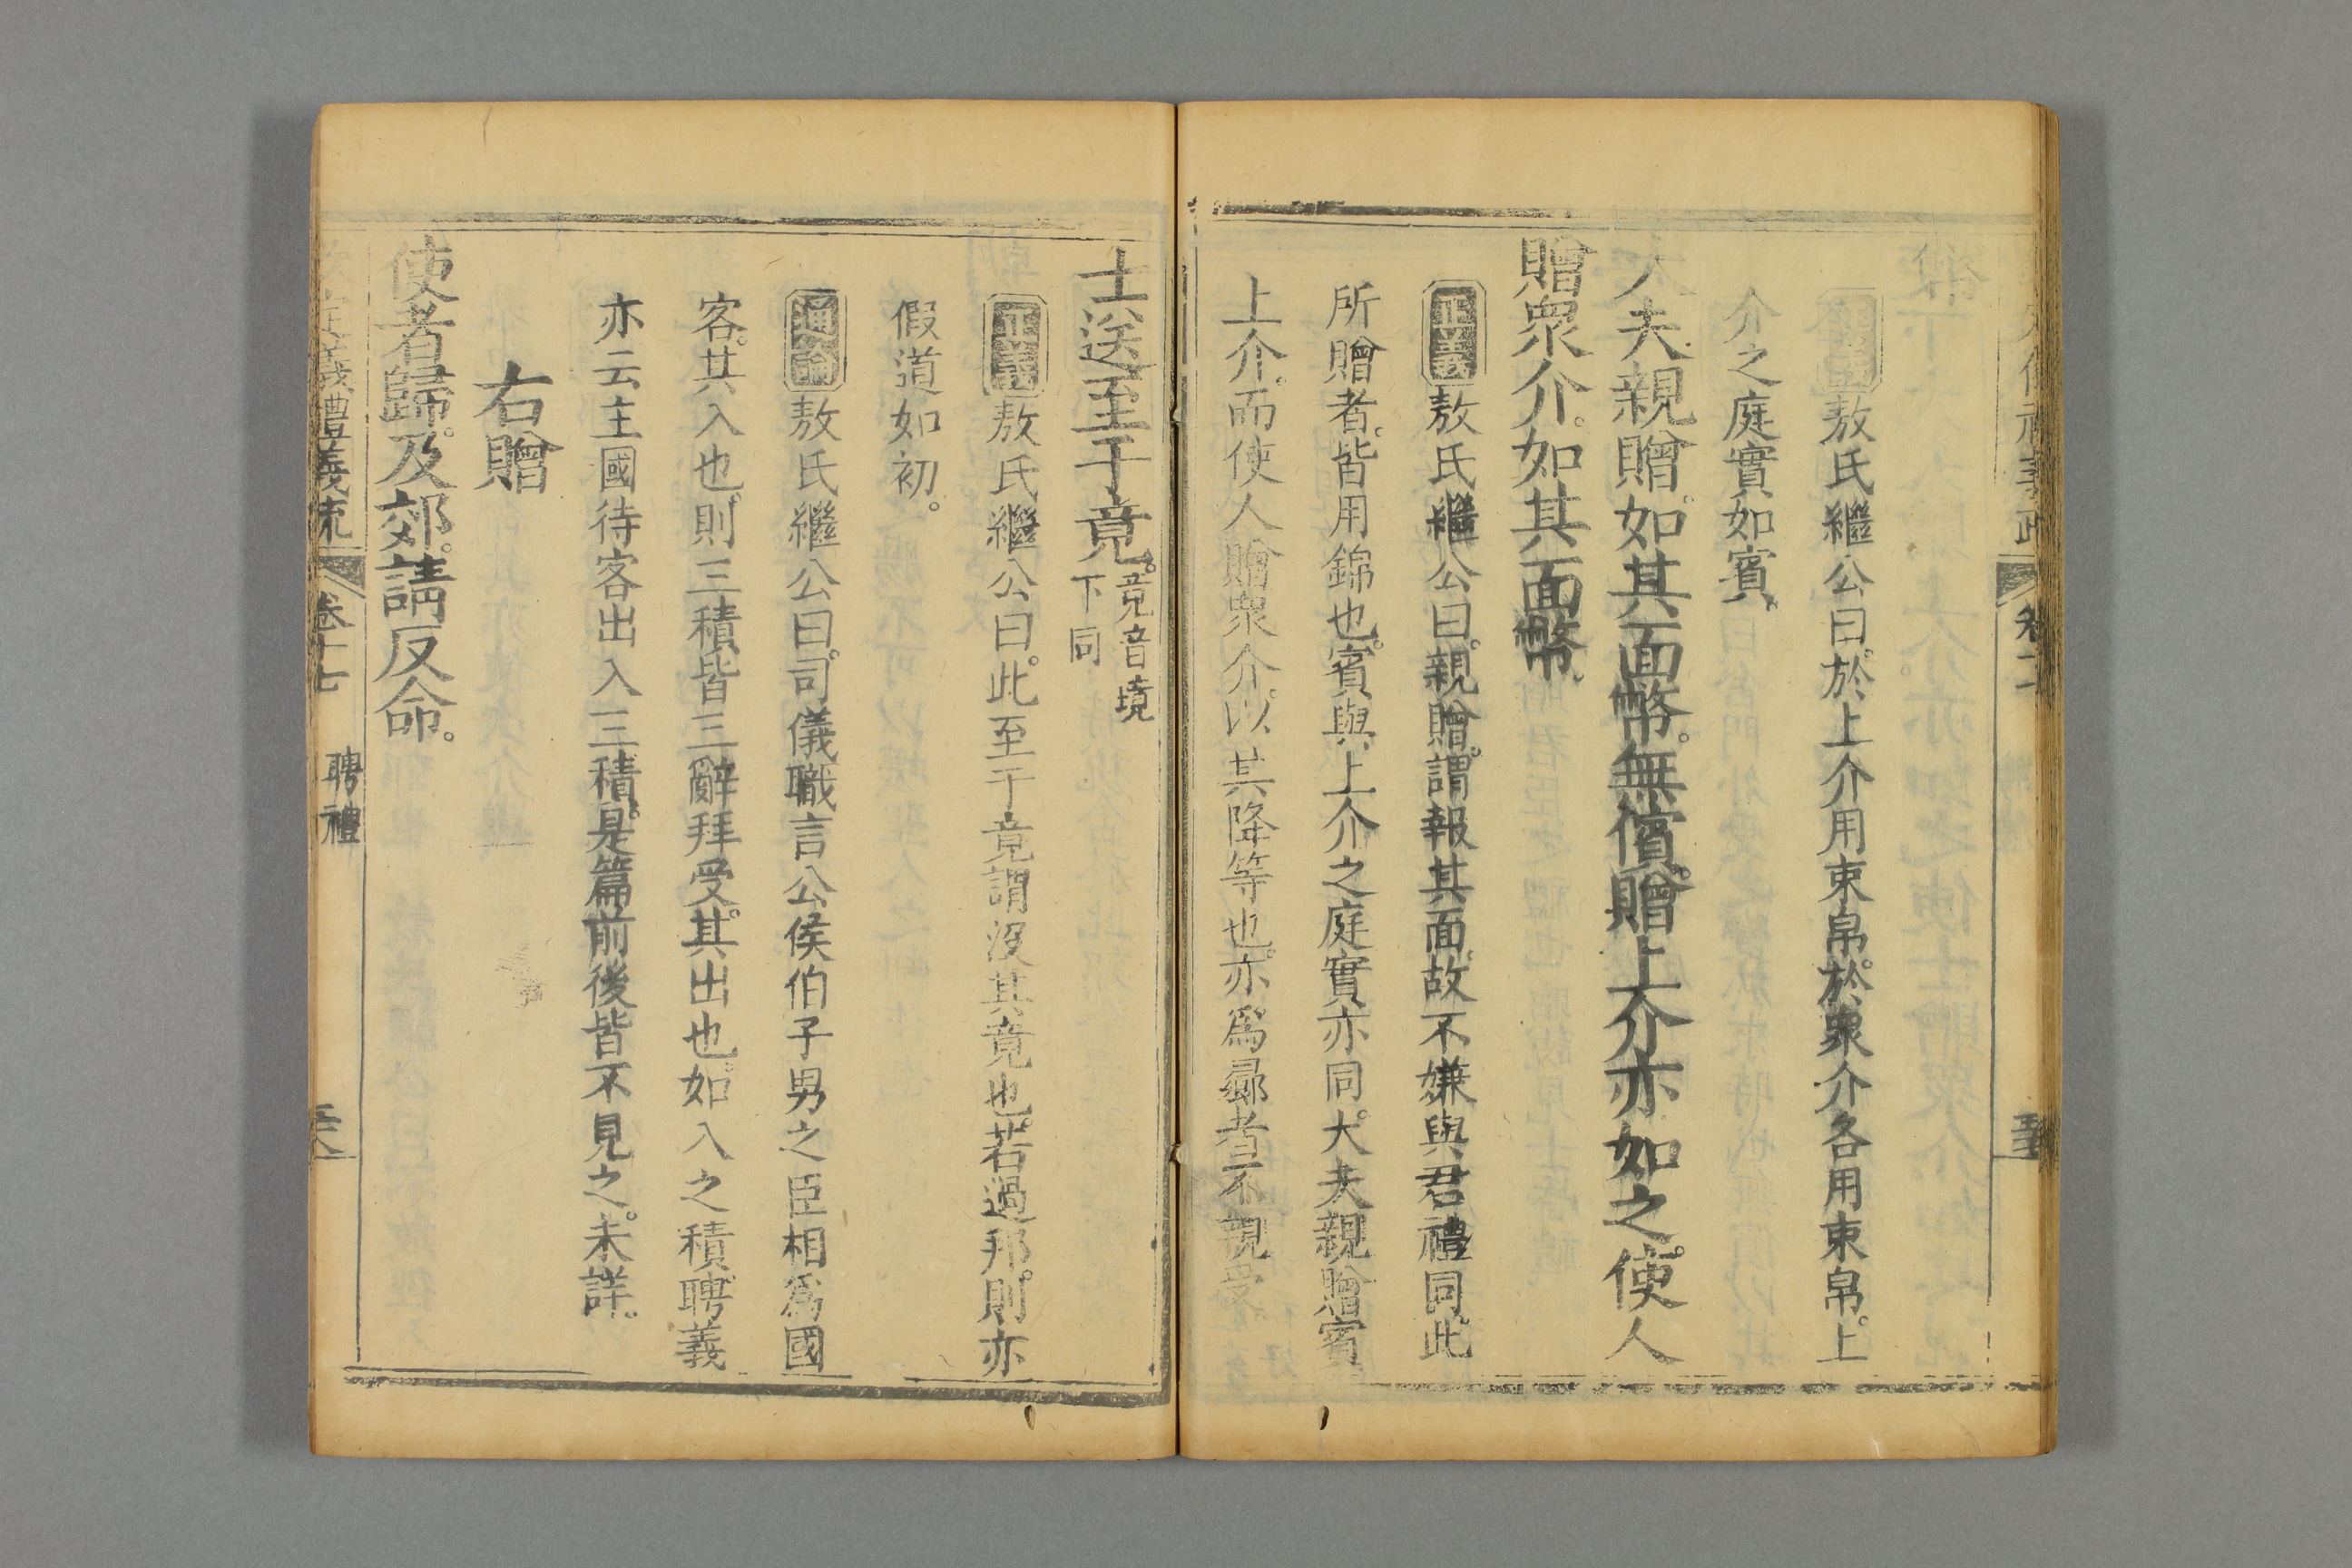 敖氏繼公曰。於上介用束帛。於衆介各用束帛。上
介之庭實如賓。
大夫親贈。如其面幣。無儐。贈上介亦如之。使人
贈衆介。如其面幣。
正義敖氏繼公曰。親贈。謂報其面。故不嫌與君禮同。此
所贈者。皆用錦也。賓與上介之庭實亦同。大夫親贈賓
上介。而使人贈衆介。以其降等也。亦爲曏者不親受
士送至于竟。竟音境下同
正義敖氏繼公曰。此至于竟。謂沒其竟也。若過邦。則亦
假道如初。
通論敖氏繼公曰。司儀職言公侯伯子男之臣相爲國
客。其入也。則三積皆三辭拜受。其出也。如入之積。聘義
亦云主國待客出入三積。是篇前後皆不見之。未詳。
右贈
使者歸。及郊。請反命。
義禮義疏 卷十七 聘禮